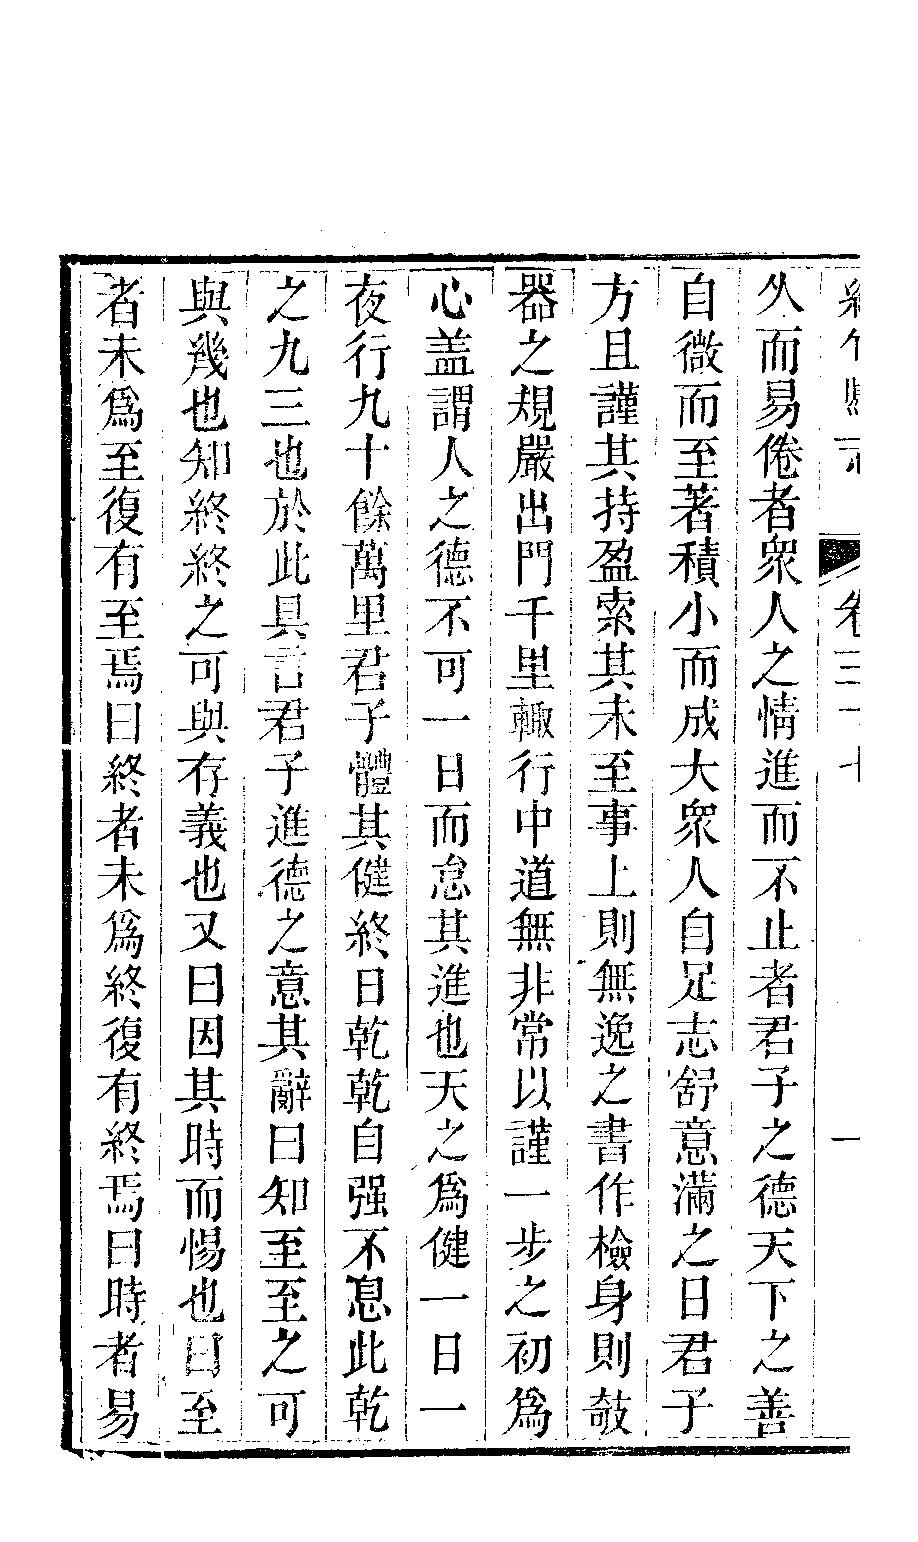 卷三十七
久而易倦者衆人之情進而不止者君子之德天下之善
自微而至著積小而成大衆人自足志舒意滿之日君子
方且謹其持盈索其未至事上則無逸之書作檢身則欹
器之規嚴出門千里輙行中道無非常以謹一步之初爲
心盖謂人之德不可一日而怠其進也天之爲健一日一
夜行九十餘萬里君子體其健終日乾乾自强不息此乾
之九三也於此具言君子進德之意其辭曰知至至之可
與幾也知終終之可與存義也又曰因其時而惕也曰至
者未爲至復有至焉曰終者未爲終復有終焉曰時者易